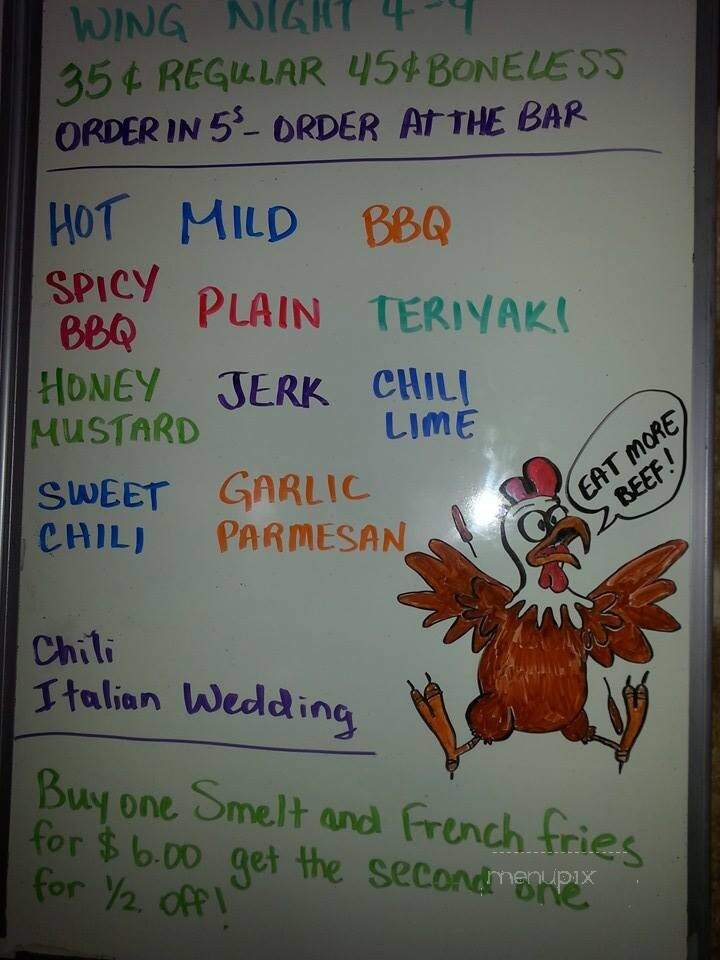 WING NIGHT 4-9
35¢ REGULAR 45¢ BONELESS
ORDER IN 5s - ORDER AT THE BAR
HOT MILD BBQ
SPICY BBQ PLAIN TERIYAKI
HONEY MUSTARD JERK CHILI LIME
SWEET CHILI GARLIC PARMESAN
EAT MORE
BEEF!
Chili
Italian Wedding
Buy one Smelt and French fries
for $6.00 get the second one
for 1/2 off!
menupix